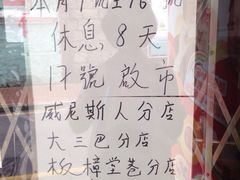 本月9號至16號
休息8天
17號啟市
威尼斯人分店
大三巴分店
板樟堂巷分店